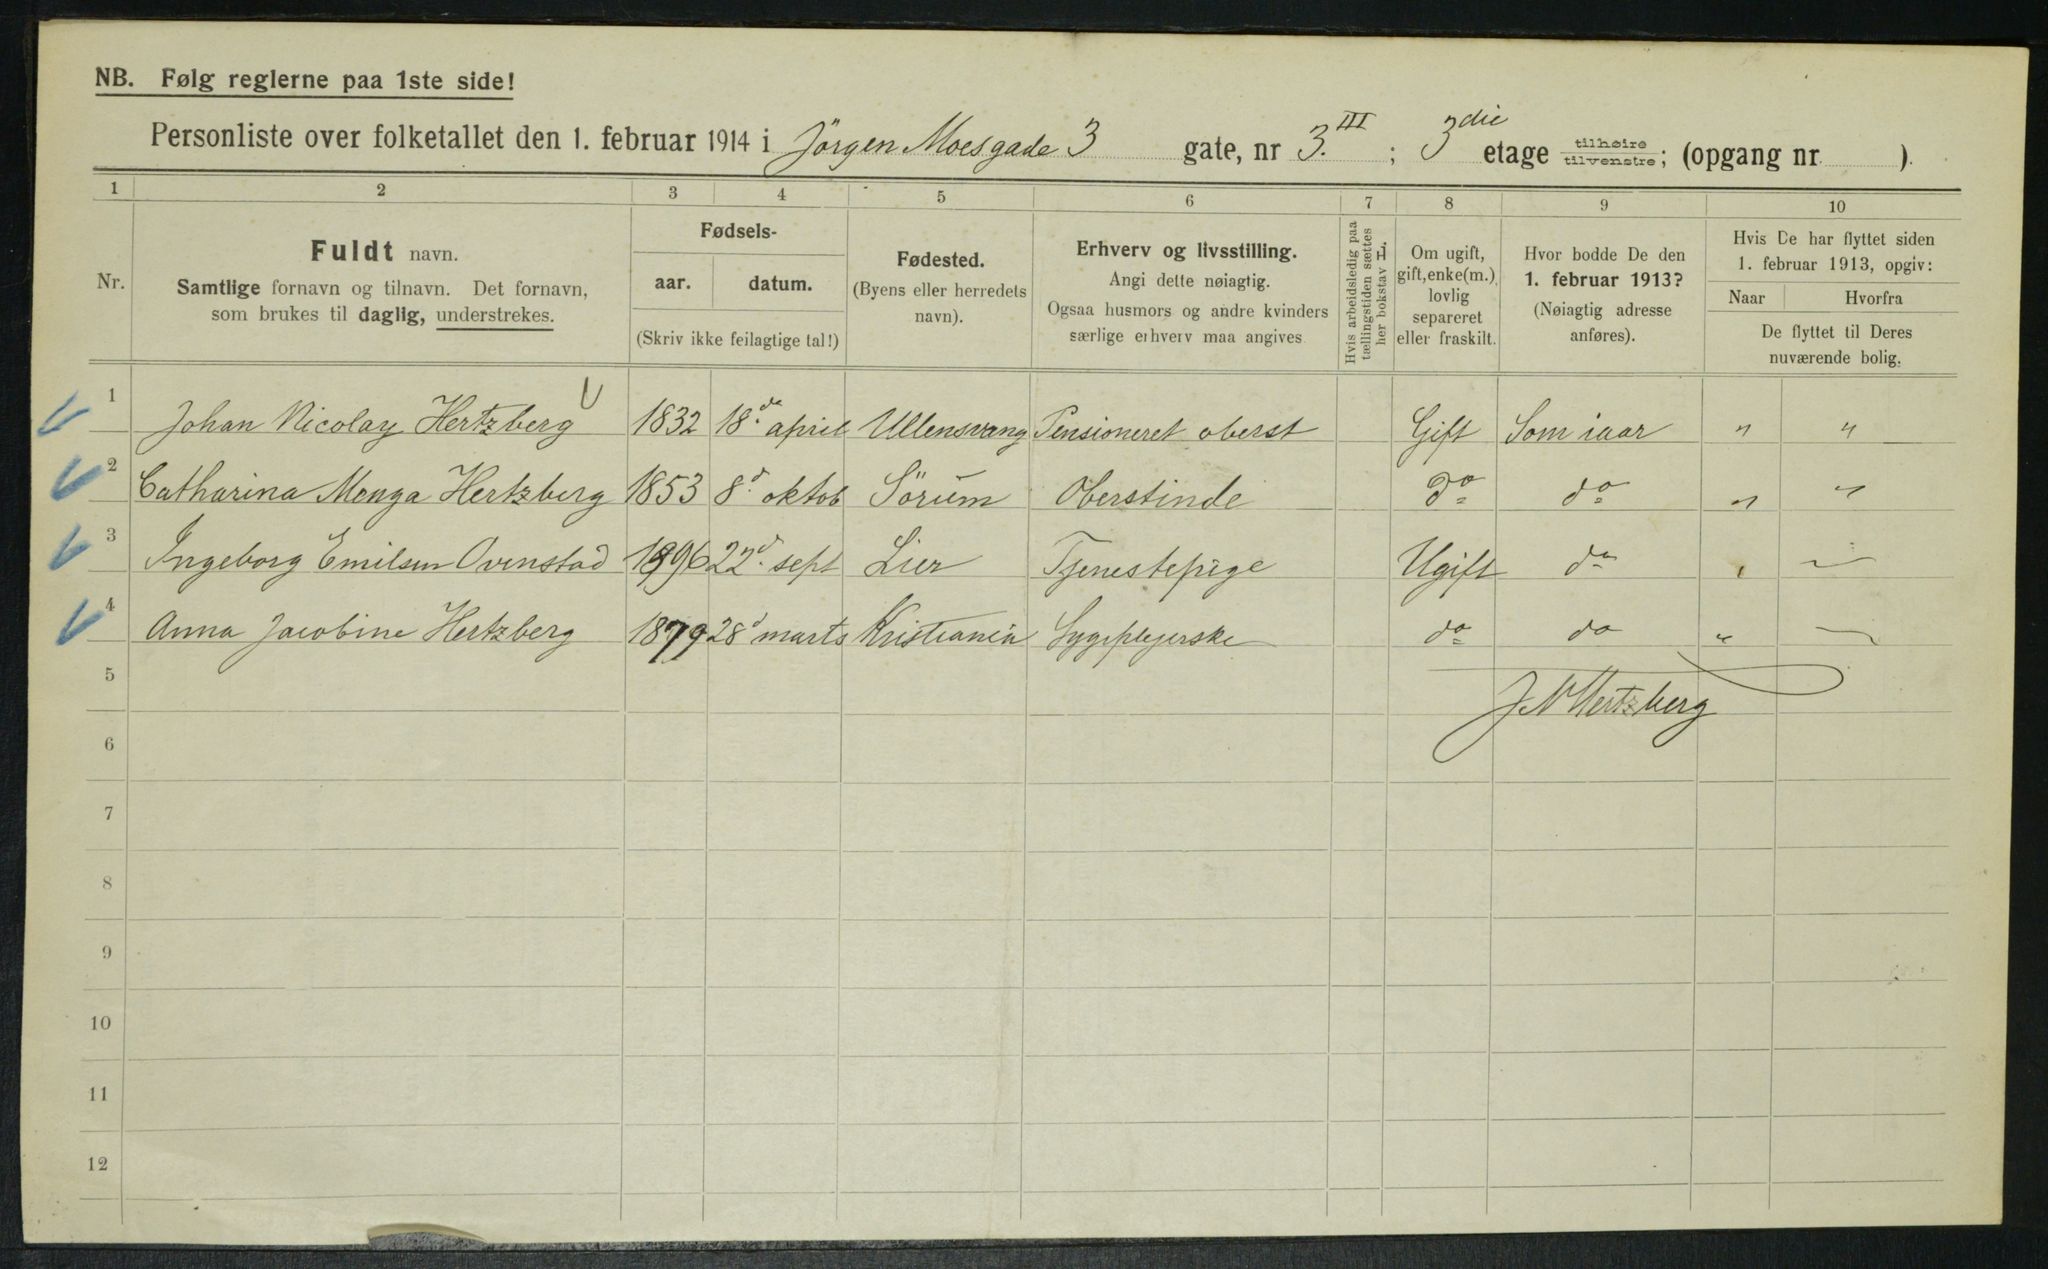 NB. Følg reglerne paa 1ste side!
Personliste over folketallet den 1. februar 1914 i Jörgen Moesgade 3 gate, nr 3. III ; 3die etage tilhøire tilvenstre; (opgang nr. ).
1 2 3 4 5 6 7 8 9 10
Nr.
Fuldt navn.
Samtlige fornavn og tilnavn. Det fornavn,
som brukes til daglig, understrekes.
Fødsels-
aar. datum.
(Skriv ikke feilagtige tal!)
Fødested.
(Byens eller herredets
navn).
Erhverv og livsstilling.
Angi dette nøiagtig.
Ogsaa husmors og andre kvinders
særlige erhverv maa angives
Hvis arbeidsledig paa
tællingstiden sættes
her bokstav L.
Om ugift,
gift, enke(m.),
lovlig
separeret
eller fraskilt.
Hvor bodde De den
1. februar 1913?
(Nøiagtig adresse
anføres).
Hvis De har flyttet siden
1. februar 1913, opgiv:
Naar Hvorfra
De flyttet til Deres
nuværende bolig.
1 Johan Nicolay Hertzberg 1832 18de april Ullensvang Pensioneret oberst Gift Som iaar " "
2 Catharina Menga Hertzberg 1853 8d. oktob Sörum Oberstinde do do " "
3 Ingeborg Emilsen Ovenstad 1896 22d. sept Lier Tjenestepige Ugift do
4 Anna Jacobine Hertzberg 1879 28d marts Kristiania Sygeplejerske do do "
5
J N Hertzberg
6
7
8
9
10
11
12